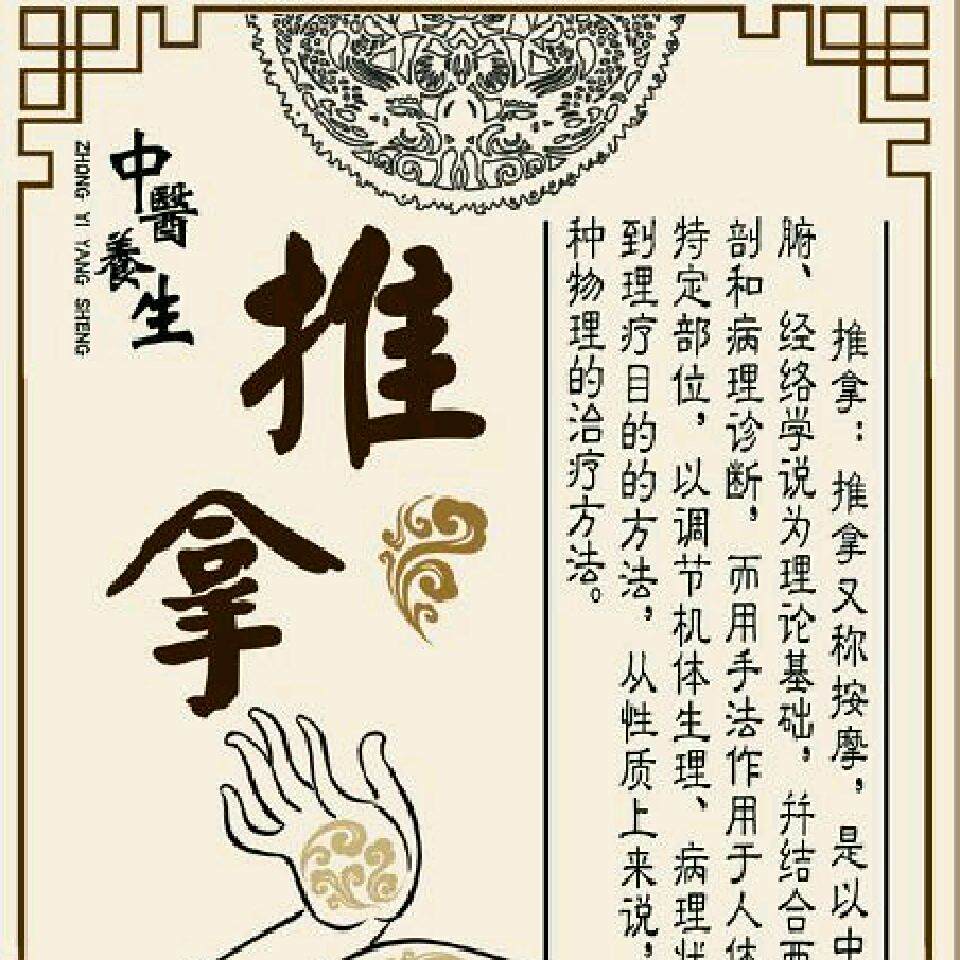 推拿：推拿又称按摩，是以中
腑、经络学说为理论基础，并结合西
剖和病理诊断，而用手法作用于人体
特定部位，以调节机体生理、病理状
到理疗目的的方法，从性质上来说，
种物理的治疗方法。
推拿
中醫養生
ZHONG YI YANG SHENG